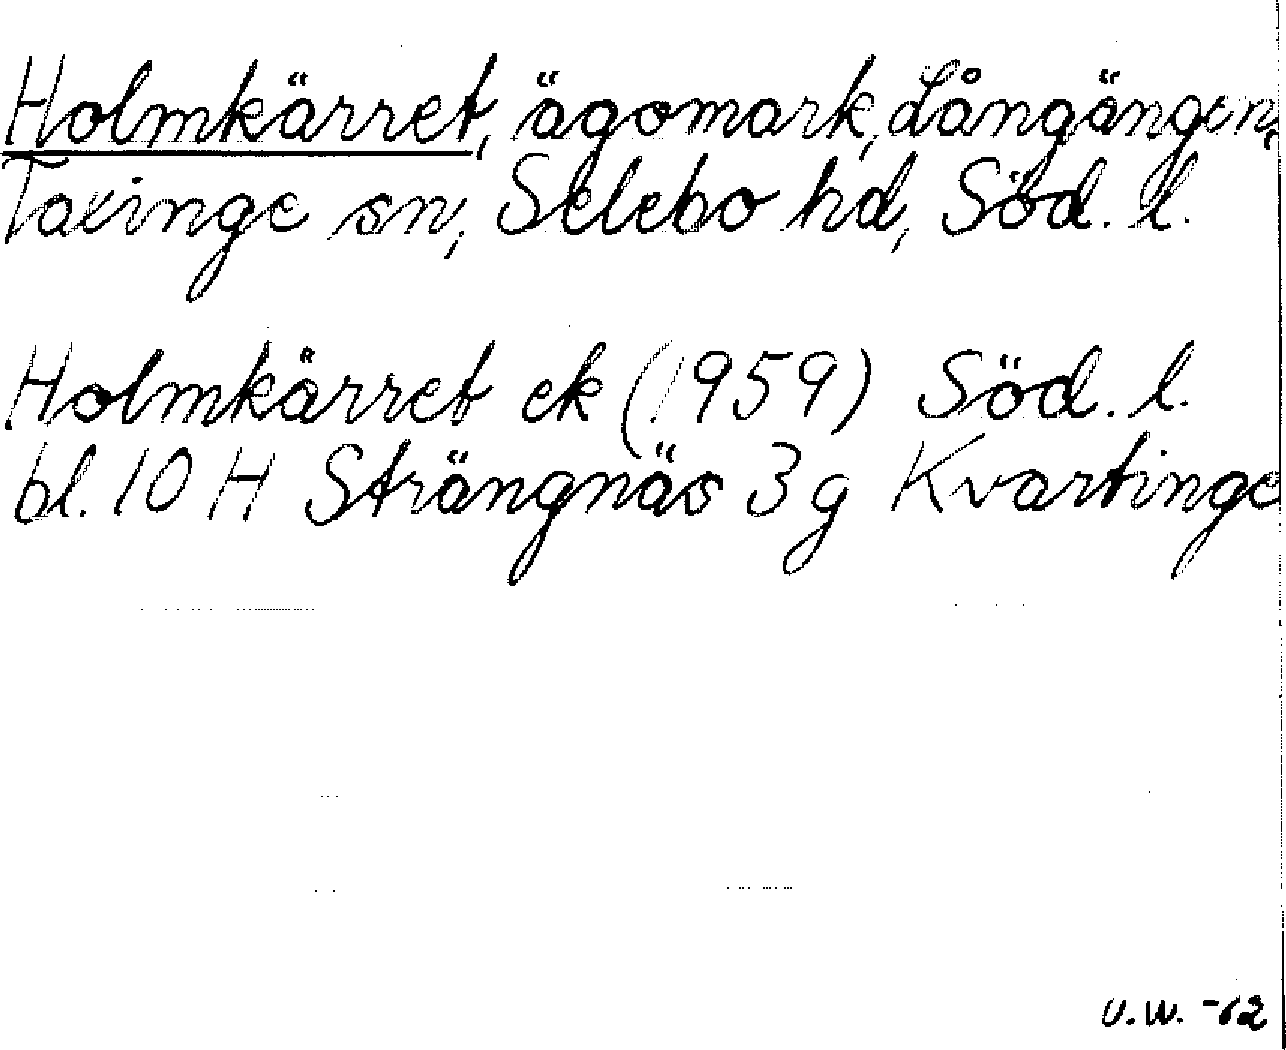 Holmkärret, ägomark, Långängen,
Taxinge sn, Selebo hd, Söd. l.
Holmkärret ek (1959) Söd. l.
bl. 10 H Strängnäs 3 g Kvartinge
U.W. -62